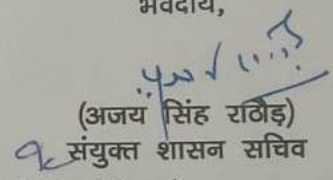 भवदीय,
(अजय सिंह राठौड़)
संयुक्त शासन सचिव